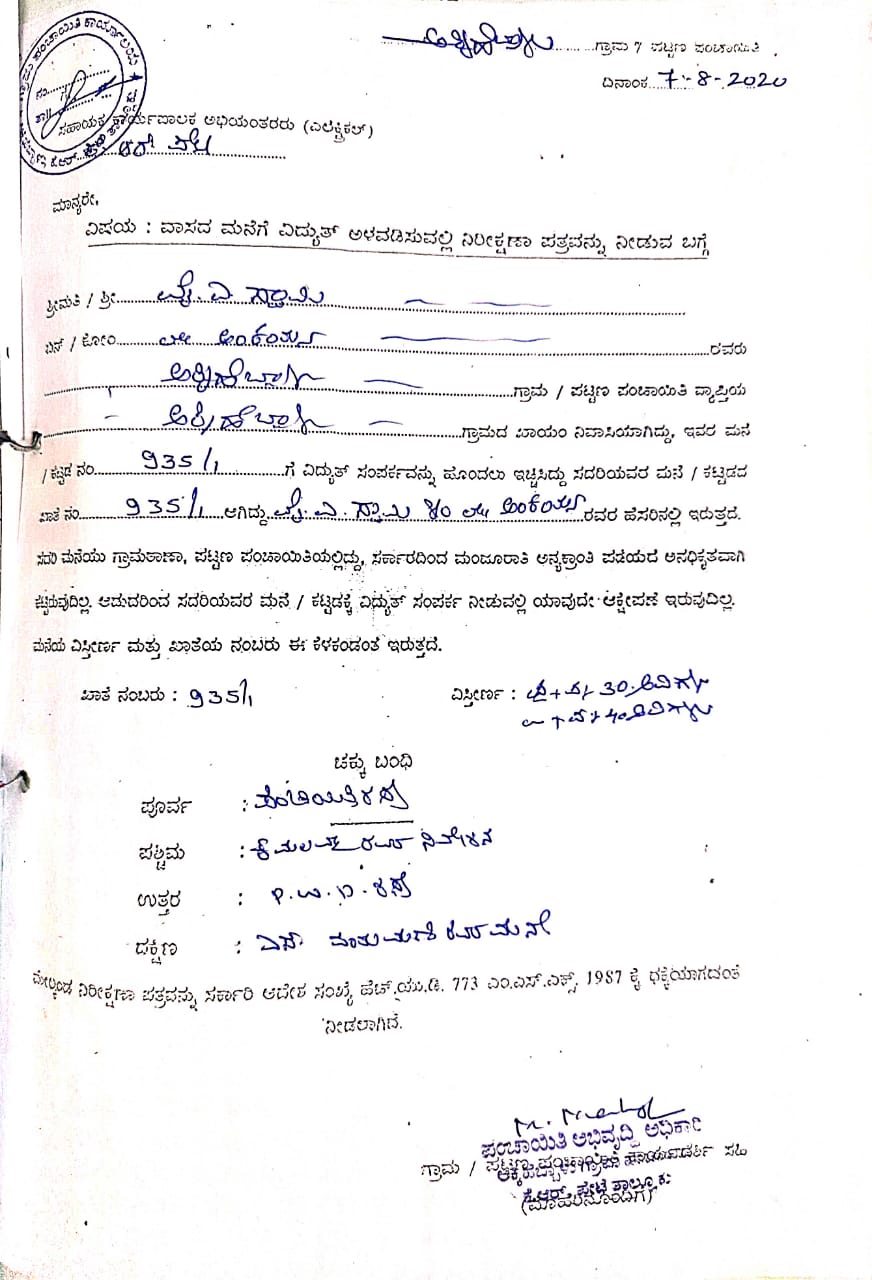 ಗ್ರಾಮ 7 ಪಟ್ಟಣ ಪಂಚಾಯಿತಿ
ದಿನಾಂಕ 7-8-2020
ಗ್ರಾಮ ಪಂಚಾಯಿತಿ ಕಾರ್ಯಾಲಯ
ಸಹಾಯಕ ಕಾರ್ಯಪಾಲಕ ಅಭಿಯಂತರರು (ಎಲೆಕ್ಟ್ರಿಕಲ್)
ಮಾನ್ಯರೇ,
ವಿಷಯ : ವಾಸದ ಮನೆಗೆ ವಿದ್ಯುತ್ ಅಳವಡಿಸುವಲ್ಲಿ ನಿರೀಕ್ಷಣಾ ಪತ್ರವನ್ನು ನೀಡುವ ಬಗ್ಗೆ
ಶ್ರೀಮತಿ / ಶ್ರೀ ವೈ. ಎ. ಸ್ವಾಮಿ
ಬಿನ್ / ಕೋಂ ಲೇ ಅಂಕಯ್ಯ ರವರು
ಅಕ್ಕಿಹೆಬ್ಬಾಳು ಗ್ರಾಮ / ಪಟ್ಟಣ ಪಂಚಾಯಿತಿ ವ್ಯಾಪ್ತಿಯ
ಅಕ್ಕಿಹೆಬ್ಬಾಳು ಗ್ರಾಮದ ಖಾಯಂ ನಿವಾಸಿಯಾಗಿದ್ದು, ಇವರ ಮನೆ
/ ಕಟ್ಟಡ ನಂ. 935/1 ಗೆ ವಿದ್ಯುತ್ ಸಂಪರ್ಕವನ್ನು ಹೊಂದಲು ಇಚ್ಚಿಸಿದ್ದು ಸದರಿಯವರ ಮನೆ / ಕಟ್ಟಡದ
ಖಾತೆ ನಂ. 935/1 ಆಗಿದ್ದು ವೈ. ಎ. ಸ್ವಾಮಿ ಲೇ ಅಂಕಯ್ಯ ರವರ ಹೆಸರಿನಲ್ಲಿ ಇರುತ್ತದೆ.
ಸದರಿ ಮನೆಯು ಗ್ರಾಮಠಾಣಾ, ಪಟ್ಟಣ ಪಂಚಾಯಿತಿಯಲ್ಲಿದ್ದು, ಸರ್ಕಾರದಿಂದ ಮಂಜೂರಾತಿ ಅನ್ಯಕ್ರಾಂತಿ ಪಡೆಯದೆ ಅನಧಿಕೃತವಾಗಿ
ಕಟ್ಟಿರುವುದಿಲ್ಲ. ಆದುದರಿಂದ ಸದರಿಯವರ ಮನೆ / ಕಟ್ಟಡಕ್ಕೆ ವಿದ್ಯುತ್ ಸಂಪರ್ಕ ನೀಡುವಲ್ಲಿ ಯಾವುದೇ ಆಕ್ಷೇಪಣೆ ಇರುವುದಿಲ್ಲ.
ಮನೆಯ ವಿಸ್ತೀರ್ಣ ಮತ್ತು ಖಾತೆಯ ನಂಬರು ಈ ಕೆಳಕಂಡಂತೆ ಇರುತ್ತದೆ.
ಖಾತೆ ನಂಬರು : 935/1 ವಿಸ್ತೀರ್ಣ : 30 ಅಡಿಗಳು
40 ಅಡಿಗಳು
ಚಕ್ಕು ಬಂಧಿ
ಪೂರ್ವ : ಪಂಚಾಯಿತಿ ರಸ್ತೆ
ಪಶ್ಚಿಮ : ರವರ ನಿವೇಶನ
ಉತ್ತರ : P.W.D. ರಸ್ತೆ
ದಕ್ಷಿಣ : ರವರ ಮನೆ
ಮೇಲ್ಕಂಡ ನಿರೀಕ್ಷಣಾ ಪತ್ರವನ್ನು ಸರ್ಕಾರಿ ಆದೇಶ ಸಂಖ್ಯೆ ಹೆಚ್.ಯು.ಡಿ. 773 ಎಂ.ಎನ್.ಎಕ್ಸ್. 1987 ಕ್ಕೆ ಧಕ್ಕೆಯಾಗದಂತೆ
ನೀಡಲಾಗಿದೆ.
ಪಂಚಾಯಿತಿ ಅಭಿವೃದ್ಧಿ ಅಧಿಕಾರಿ
ಗ್ರಾಮ / ಪಟ್ಟಣ ಪಂಚಾಯಿತಿ ಕಾರ್ಯದರ್ಶಿ ಸಹಿ
ಕೆ.ಆರ್. ಪೇಟೆ ತಾಲ್ಲೂಕು
(ಮೊಹರಿನೊಂದಿಗೆ)